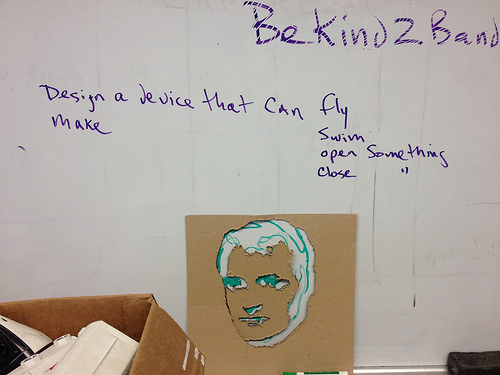 BeKind2Band
Design a device that can fly
make
Swim
open Something
Close "